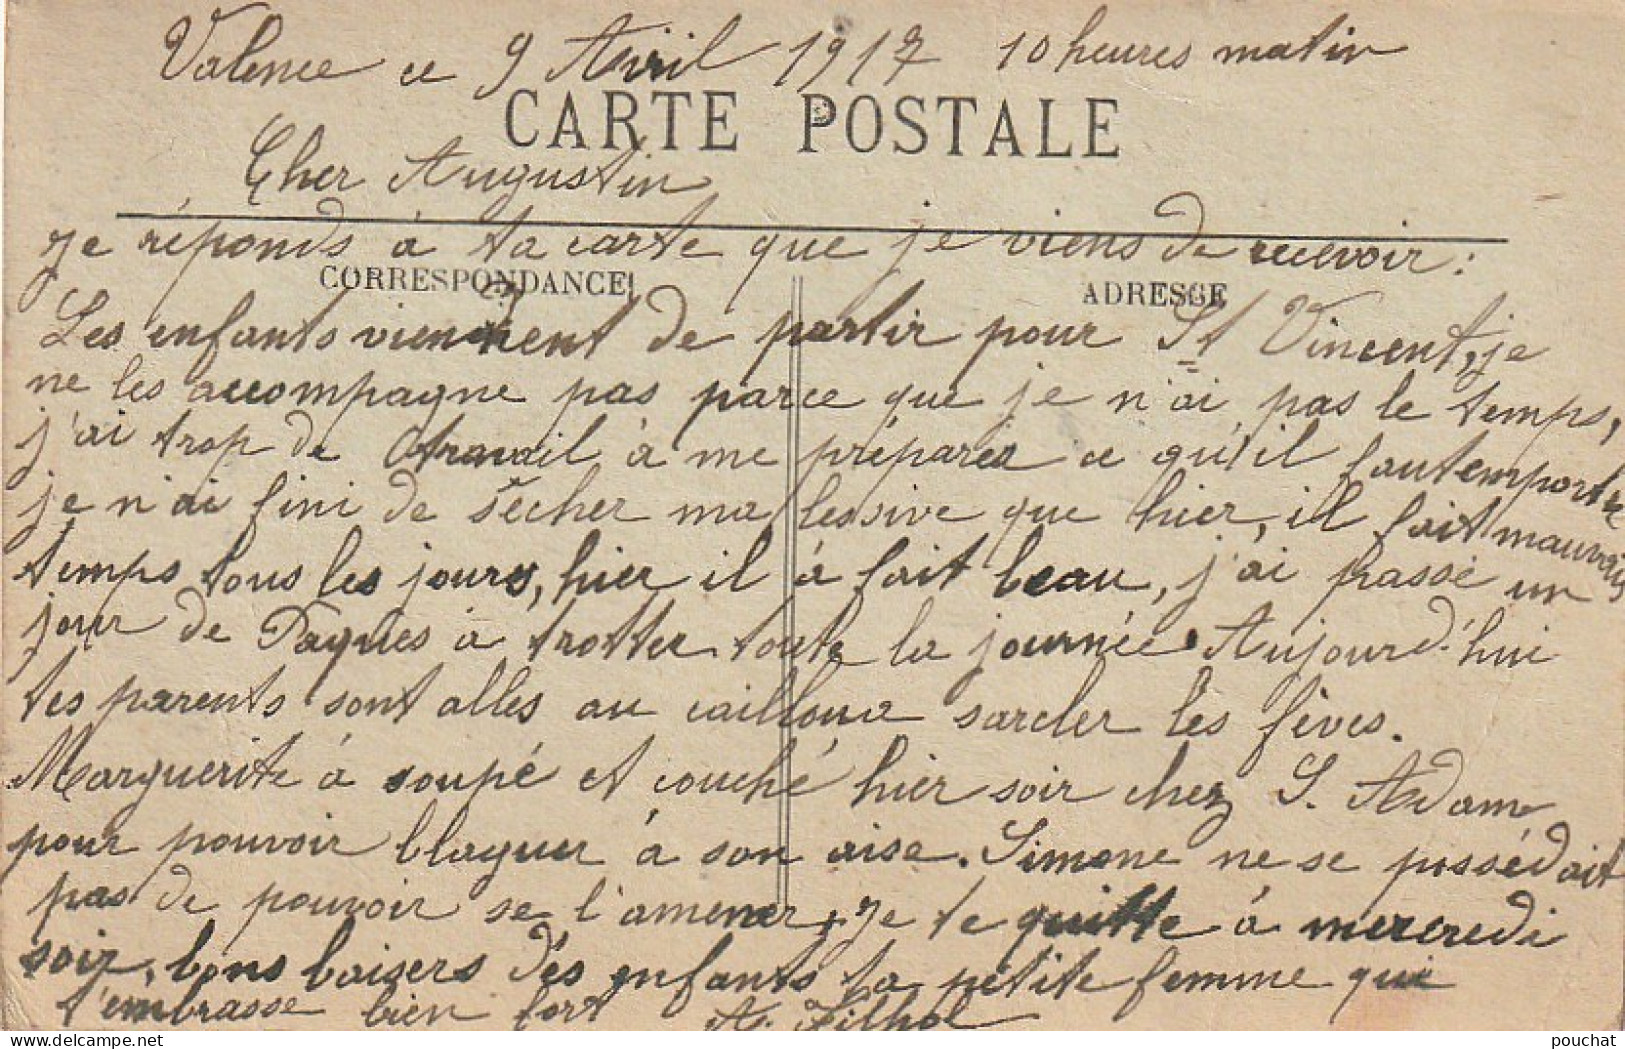 Valence ce 9 Avril 1917 10 heures matin
CARTE POSTALE
Cher Augustin
je réponds à ta carte que je viens de recevoir :
CORRESPONDANCE
ADRESSE
Les enfants viennent de partir pour St Vincent, je
ne les accompagne pas parce que je n'ai pas le temps,
j'ai trop de travail à me préparer ce qu'il faut emporter
je n'ai fini de sècher ma lessive que hier, il fait mauvais
temps tous les jours, hier il à fait beau, j'ai passé un
jour de Paques à trotter toute la journée. Aujourd'hui
tes parents sont allés au cailloux sarcler les fèves.
Marguerite à soupé et couché hier soir chez S. Adam
pour pouvoir blaguer à son aise. Simone ne se possédait
pas de pouvoir se l'amener, je te quitte à mercredi
soir, bons baisers dés enfants ta pétite femme qui
t'embrasse bien fort A. Filhol
pouchat
delcampe.net